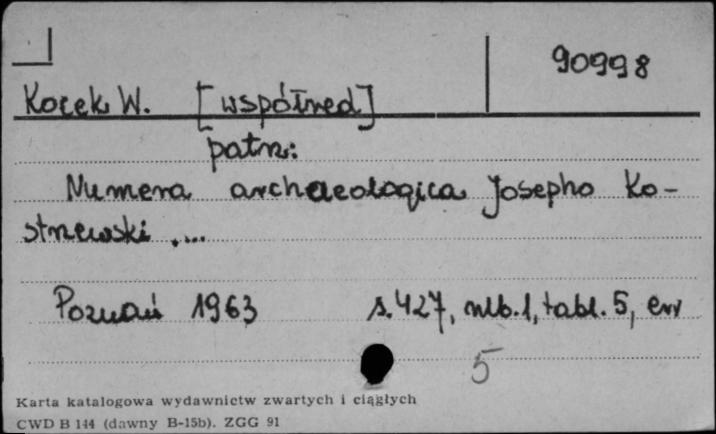 90998
Kocek W. [współred]
patrz:
Munera archaeologica Josepho Ko-
strzewski ....
Poznań 1963 s. 427, nlb. 1, tabl. 5, err
5
Karta katalogowa wydawnictw zwartych i ciągłych
CWD B 144 (dawny B-15b). ZGG 91